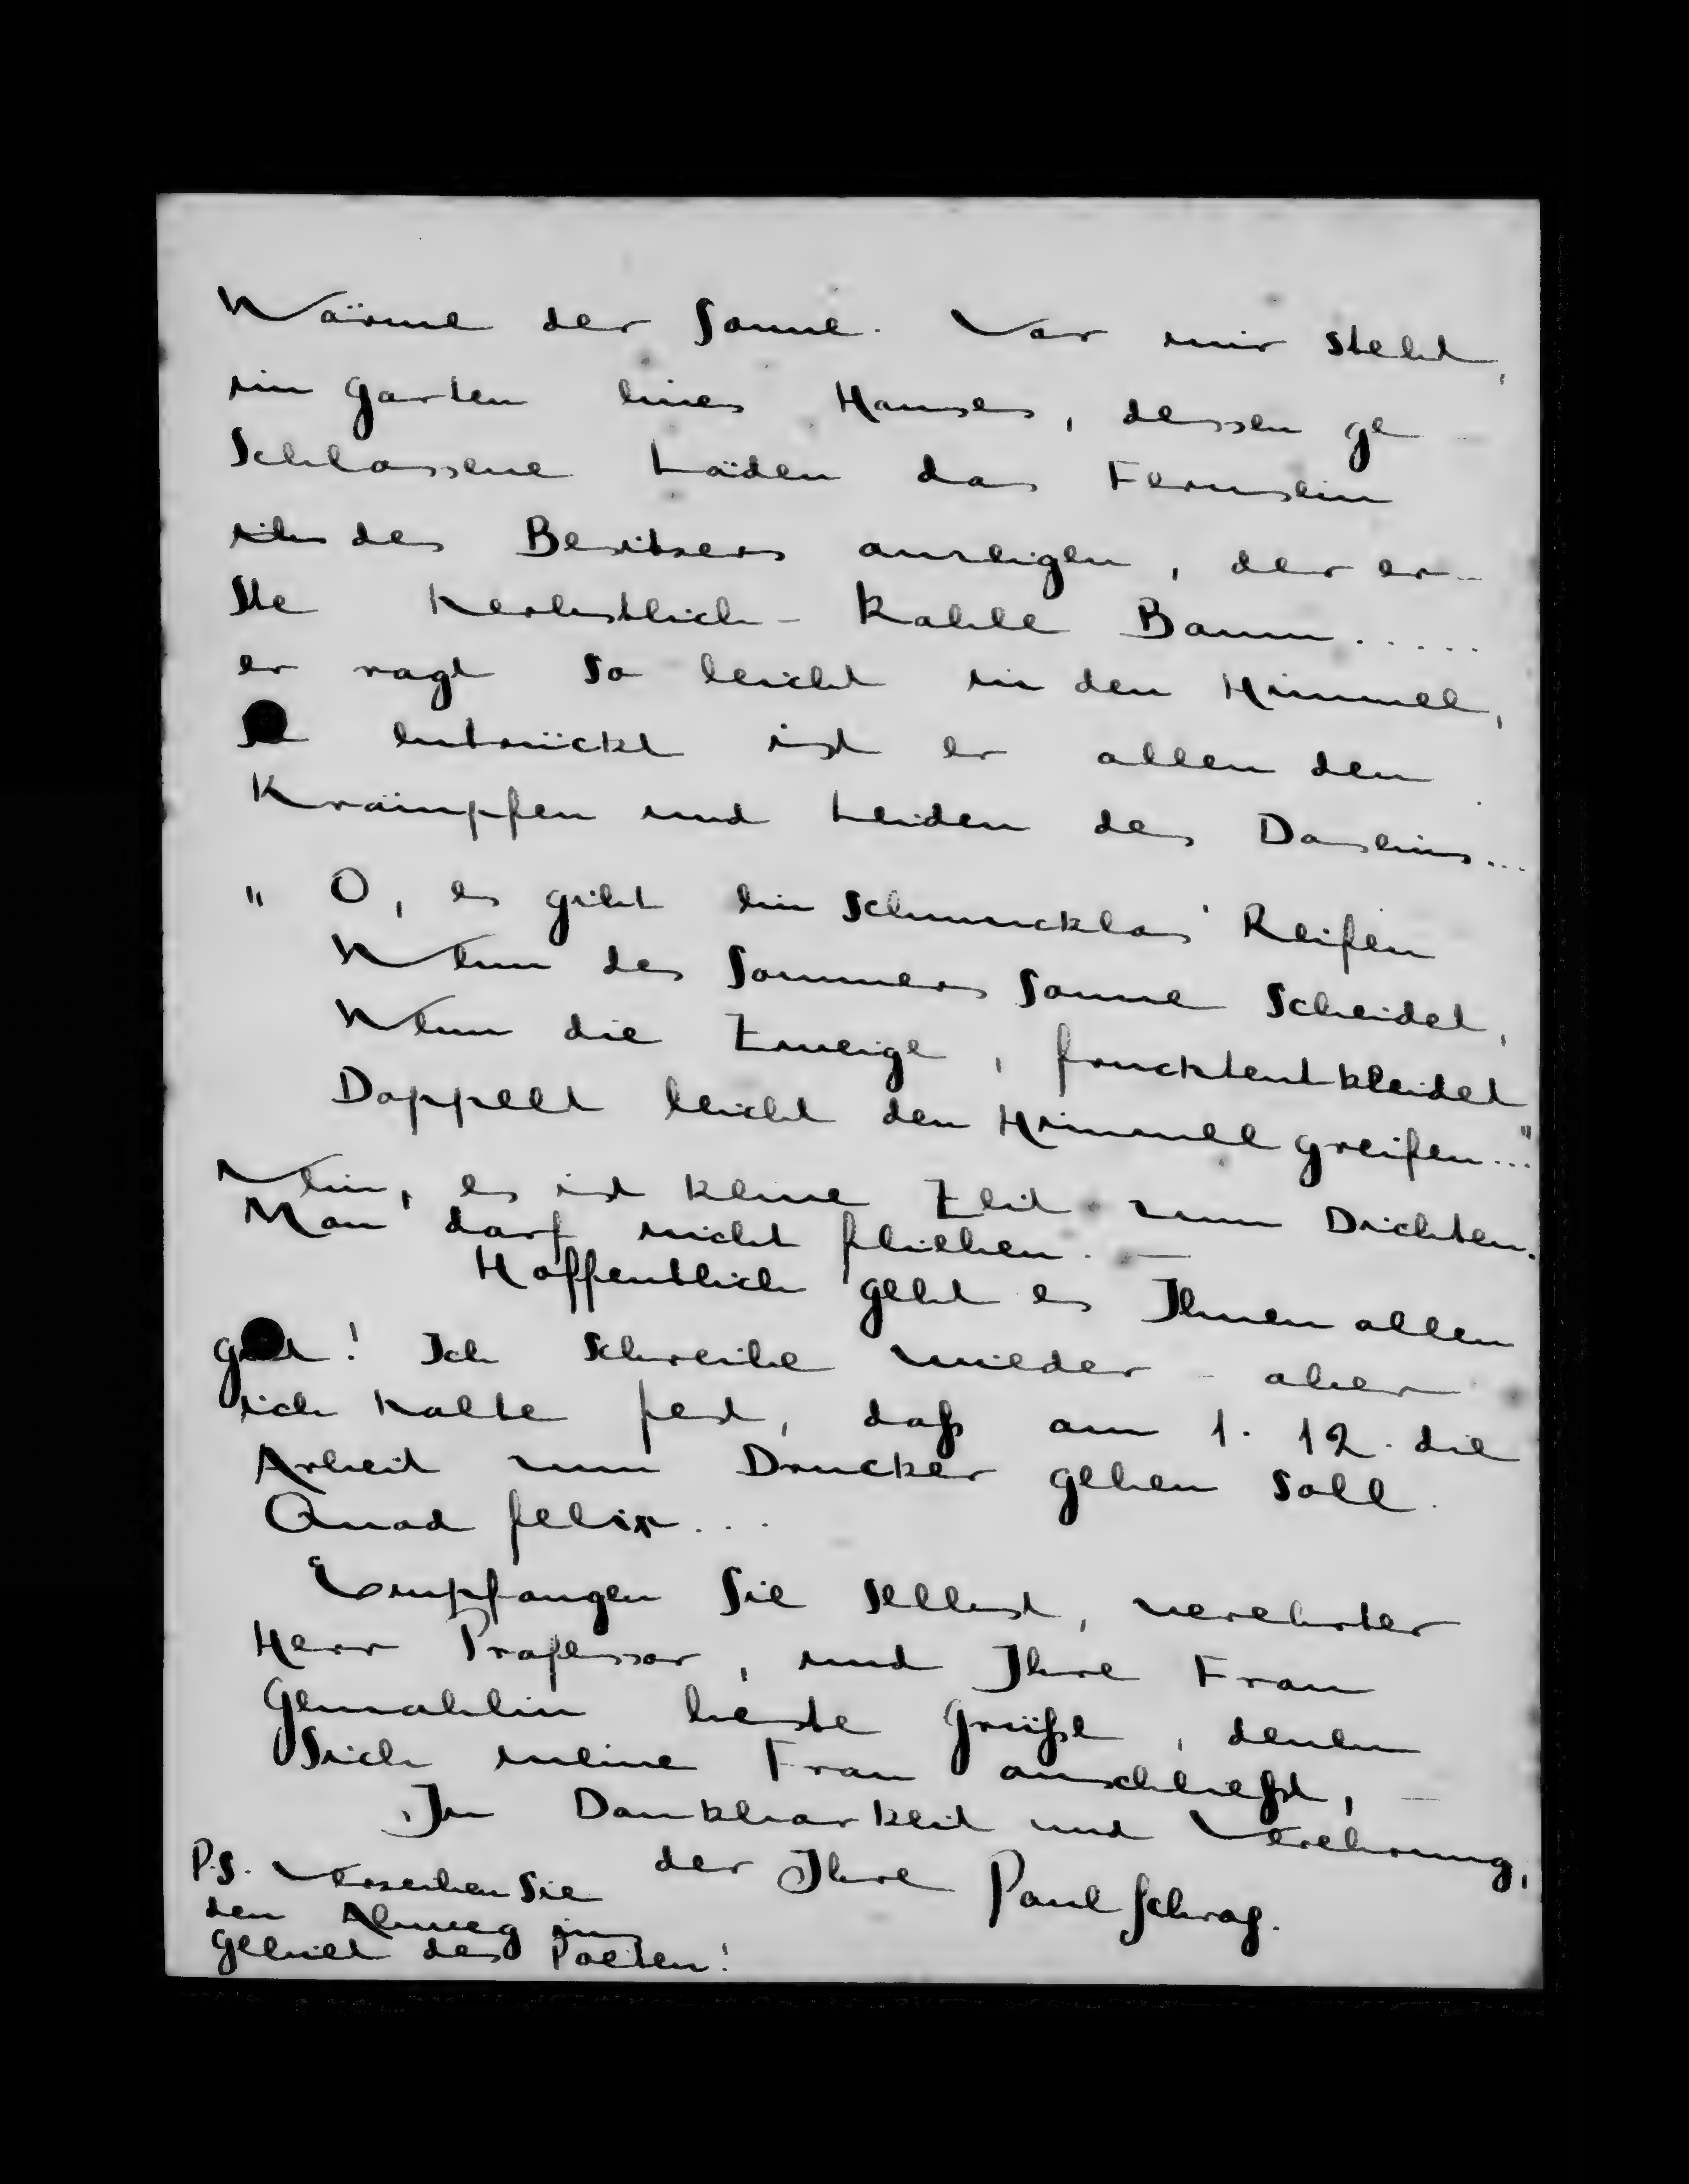 Wärme der Sonne. Vor mir steht,
im Garten eines Hauses, dessen ge
schlossene Läden das Fernsein
des Besitzers anzeigen, der er-
ste herbstlich-kahle Baum......
er ragt so leicht in den Himmel,
so entrückt ist er allen den
Krämpfen und Leiden des Daseins...
" O, es gibt ein schmucklos' Reifen
Wenn des Sommers Sonne scheidet,
Wenn die Zweige, fruchtentkleidet
Doppelt leicht den Himmel greifen..."
Nein, es ist keine Zeit zum Dichten.
Man darf nicht fliehen. —
Hoffentlich geht es Ihnen allen
gut! Ich schreibe wieder - aber
ich halte fest, daß am 1. 12. die
Arbeit zum Drucker gehen soll.
Quod felix...
Empfangen Sie selbst, verehrter
Herr Professor, und Ihre Frau
Gemahlin beste Grüße, denen
sich meine Frau anschließt, —
In Dankbarkeit und Verehrung,
der Ihre Paul Schrag.
P.S. Verzeihen Sie
den Abweg ins
Gebiet des Poeten!